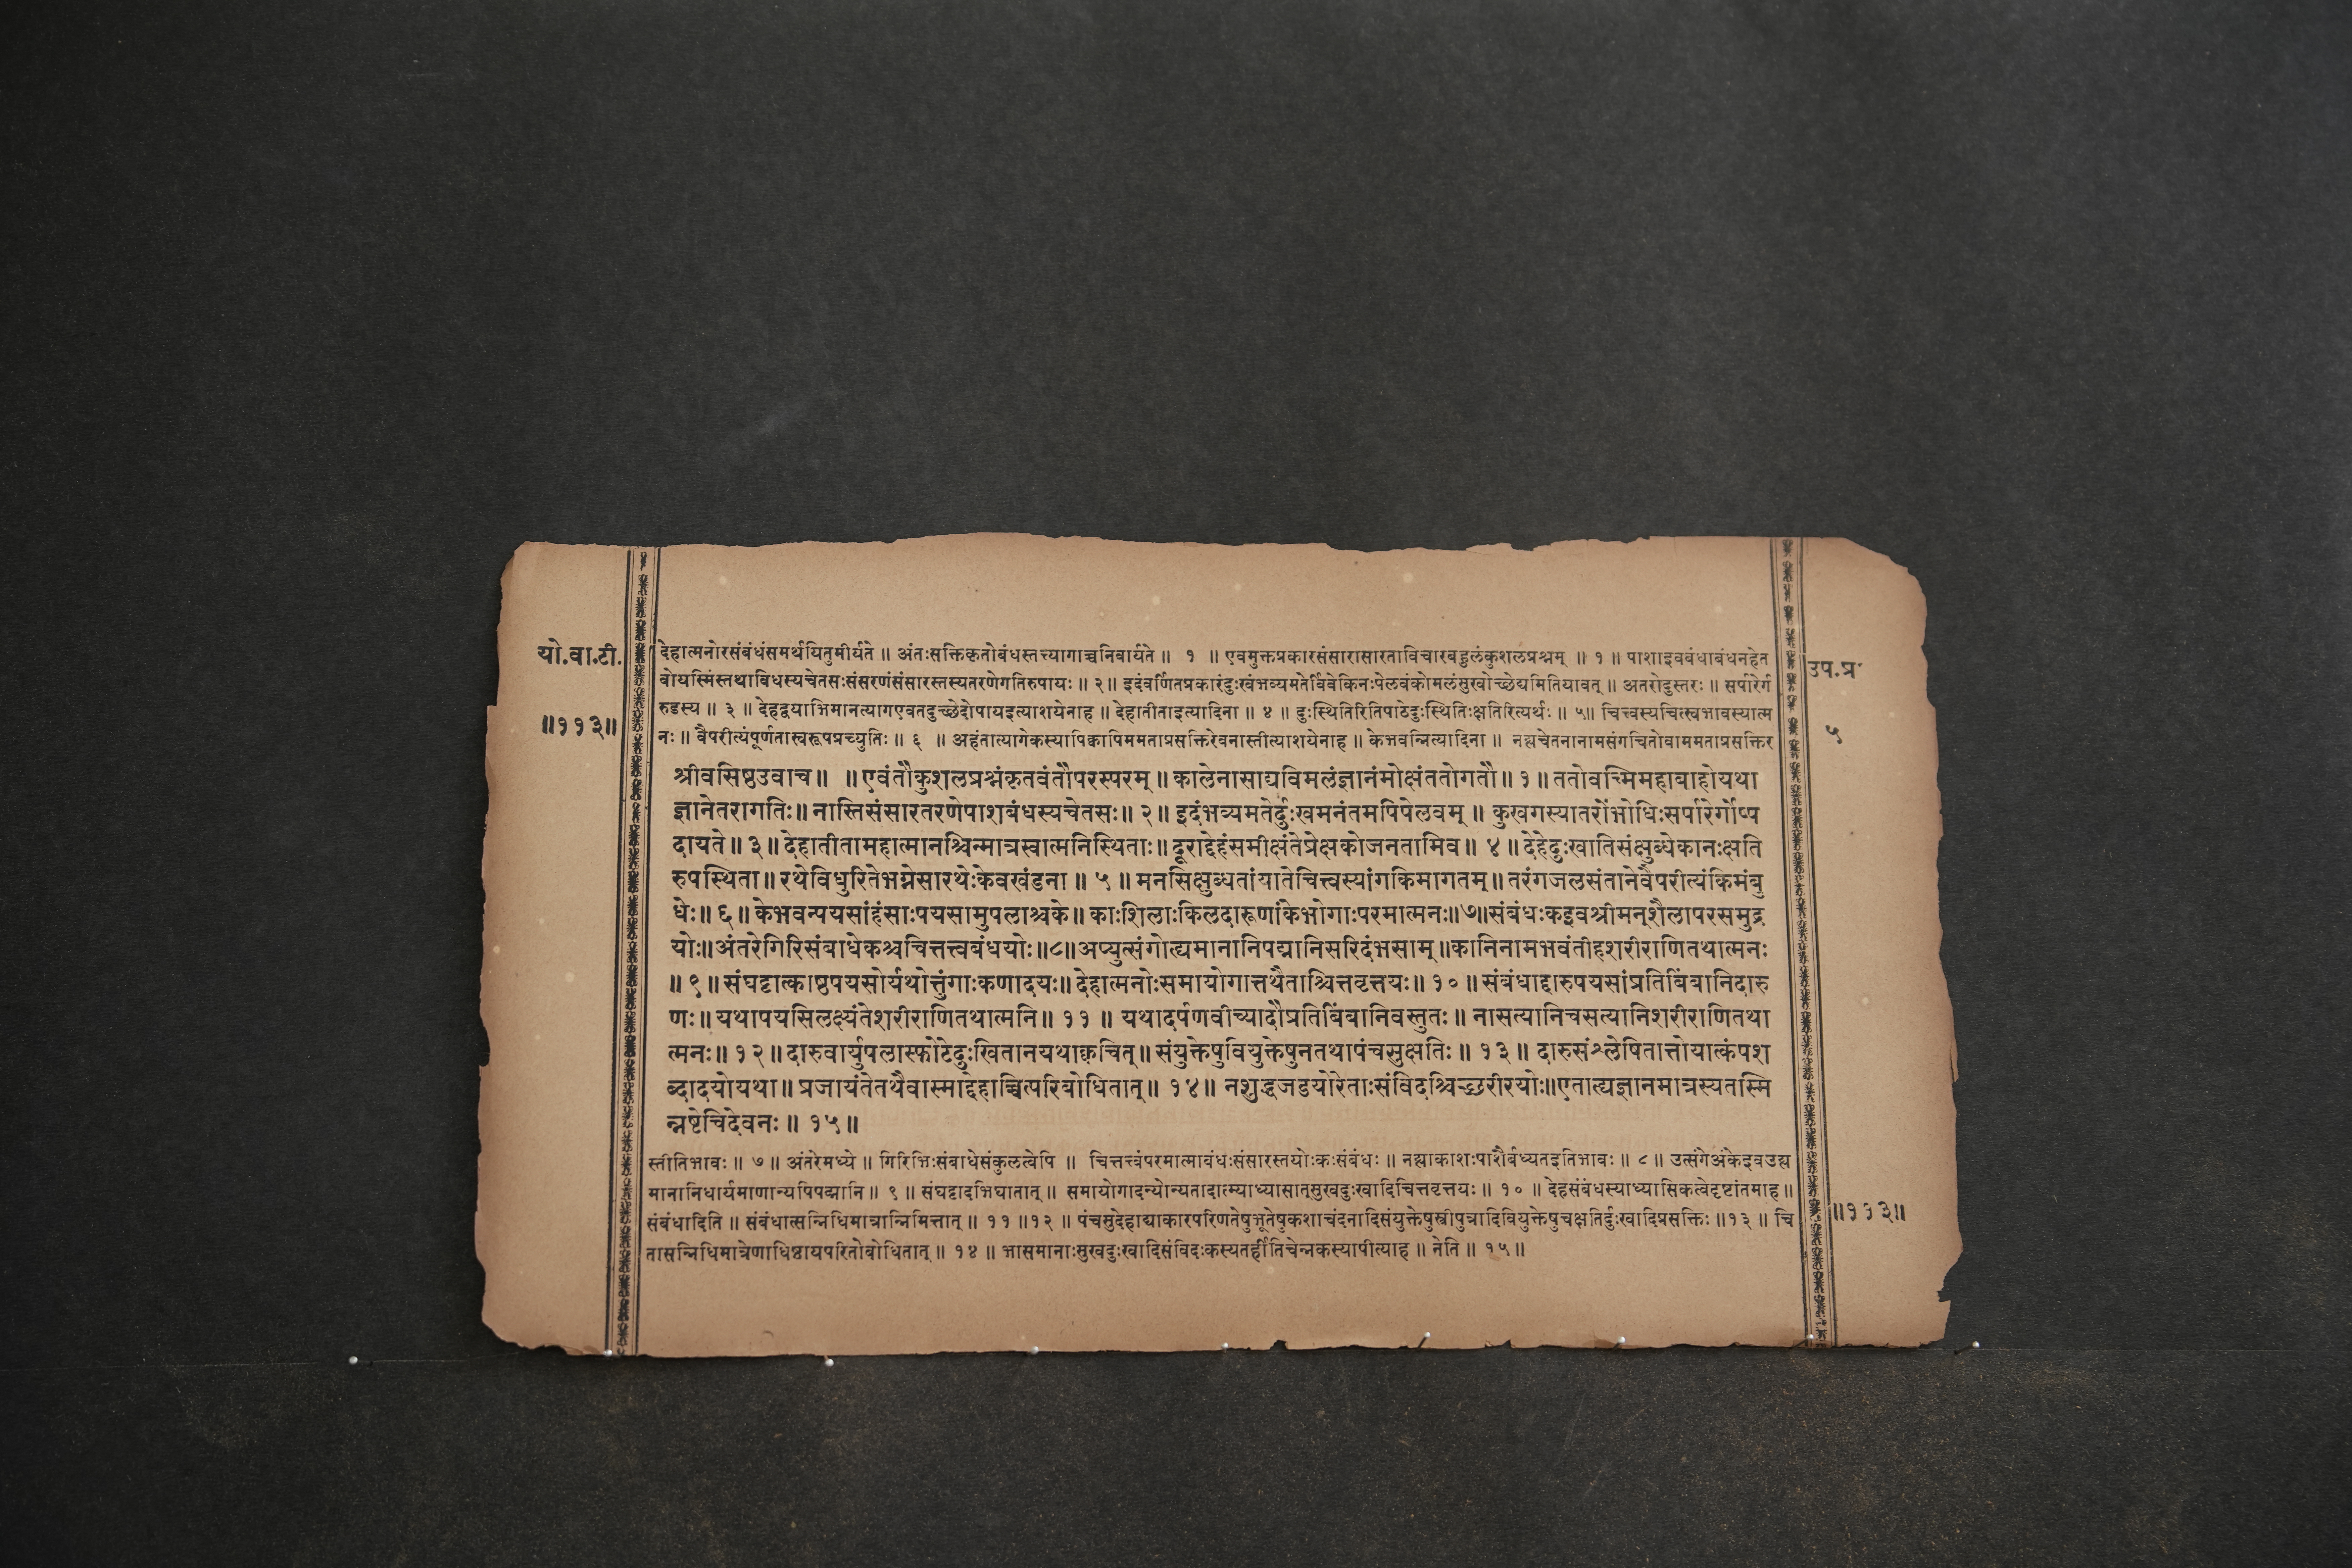 यो.वा.टी.
॥११३॥
उप.प्र
५
देहात्मनोरसंबंधंसमर्थयितुमीर्यते ॥ अंतःसक्तिकृतोबंधस्तत्त्यागाच्चनिवार्यते ॥ १ ॥ एवमुक्तप्रकारसंसारासारताविचारबहुलंकुशलप्रश्नम् ॥ १ ॥ पाशाइवबंधाबंधनहेत
वोयस्मिंस्तथाविधस्यचेतसःसंसरणंसंसारस्तस्यतरणेगतिरुपायः ॥ २॥ इदंवर्णितप्रकारंदुःखंभव्यमतेर्विवेकिनःपेलवंकोमलंसुखोच्छेद्यमितियावत् ॥ अतरोदुस्तरः ॥ सर्पारेर्ग
रुडस्य ॥ ३ ॥ देहद्वयाभिमानत्यागएवतदुच्छेदोपायइत्याशयेनाह ॥ देहातीताइत्यादिना ॥ ४ ॥ दुःस्थितिरितिपाठेदुःस्थितिःक्षतिरित्यर्थः ॥ ५॥ चित्त्वस्यचित्स्वभावस्यात्म
नः ॥ वैपरीत्यंपूर्णतास्वरूपप्रच्युतिः ॥ ६ ॥ अहंतात्यागेकस्यापिक्वापिममताप्रसक्तिरेवनास्तीत्याशयेनाह ॥ केभवन्नित्यादिना ॥ नह्यचेतनानामसंगचितोवाममताप्रसक्तिर
श्रीवसिष्ठउवाच॥ ॥एवंतौकुशलप्रश्नंकृतवंतौपरस्परम् ॥ कालेनासाद्यविमलंज्ञानंमोक्षंततोगतौ॥१॥ ततोवच्मिमहाबाहोयथा
ज्ञानेतरागतिः॥ नास्तिसंसारतरणेपाशबंधस्यचेतसः॥ २॥ इदंभव्यमतेर्दुःखमनंतमपिपेलवम् ॥ कुखगस्यातरोंभोधिःसर्पारेर्गोष्प
दायते ॥ ३॥ देहातीतामहात्मानश्चिन्मात्रस्वात्मनिस्थिताः॥ दूराद्देहंसमीक्षंतेप्रेक्षकोजनतामिव॥ ४ ॥ देहेदुःखातिसंक्षुब्धेकानःक्षति
रुपस्थिता॥ रथेविधुरितेभग्नेसारथेःकेवखंडना ॥ ५ ॥ मनसिक्षुब्धतांयातेचित्त्वस्यांगकिमागतम्॥ तरंगजलसंतानेवैपरीत्यंकिमंबु
धेः॥ ६॥ केभवन्पयसांहंसाःपयसामुपलाश्चके॥ काःशिलाःकिलदारूणांकेभोगाःपरमात्मनः॥७॥संबंधःकइवश्रीमन्शैलापरसमुद्र
योः॥अंतरेगिरिसंबाधेकश्चचित्तत्त्वबंधयोः॥८॥अप्युत्संगोह्यमानानिपद्मानिसरिदंभसाम्॥कानिनामभवंतीहशरीराणितथात्मनः
॥ ९॥ संघट्टात्काष्ठपयसोर्यथोत्तुंगाःकणादयः॥ देहात्मनोःसमायोगात्तथैताश्चित्तवृत्तयः॥ १०॥ संबंधाद्दारुपयसांप्रतिबिंबानिदारु
णः॥ यथापयसिलक्ष्यंतेशरीराणितथात्मनि॥ ११ ॥ यथादर्पणवीच्यादौप्रतिबिंबानिवस्तुतः॥ नासत्यानिचसत्यानिशरीराणितथा
त्मनः॥ १२॥ दारुवार्युपलास्फोटेदुःखितानयथाक्वचित्॥ संयुक्तेषुवियुक्तेषुनतथापंचसुक्षतिः॥ १३॥ दारुसंश्लेषितात्तोयात्कंपश
ब्दादयोयथा॥ प्रजायंतेतथैवास्माद्देहाच्चित्परिबोधितात्॥ १४॥ नशुद्धजडयोरेताःसंविदश्चिच्छरीरयोः॥एताह्यज्ञानमात्रस्यतस्मि
न्नष्टेचिदेवनः॥ १५॥
स्तीतिभावः ॥ ७ ॥ अंतरेमध्ये ॥ गिरिभिःसंबाधेसंकुलत्वेपि ॥ चित्तत्त्वंपरमात्माबंधःसंसारस्तयोःकःसंबंधः ॥ नह्याकाशःपाशैर्बध्यतइतिभावः ॥ ८ ॥ उत्संगेअंकेइवउह्य
मानानिधार्यमाणान्यपिपद्मानि ॥ ९ ॥ संघट्टादभिघातात् ॥ समायोगादन्योन्यतादात्म्याध्यासात्सुखदुःखादिचित्तवृत्तयः ॥ १० ॥ देहसंबंधस्याध्यासिकत्वेदृष्टांतमाह॥
संबंधादिति ॥ संबंधात्सन्निधिमात्रान्निमित्तात् ॥ ११ ॥१२ ॥ पंचसुदेहाद्याकारपरिणतेषुभूतेषुकशाचंदनादिसंयुक्तेषुस्त्रीपुत्रादिवियुक्तेषुचक्षतिर्दुःखादिप्रसक्तिः ॥१३ ॥ चि
तासन्निधिमात्रेणाधिष्ठायपरितोबोधितात् ॥ १४ ॥ भासमानाःसुखदुःखादिसंविदःकस्यतर्हीतिचेन्नकस्यापीत्याह ॥ नेति ॥ १५॥
॥११३॥